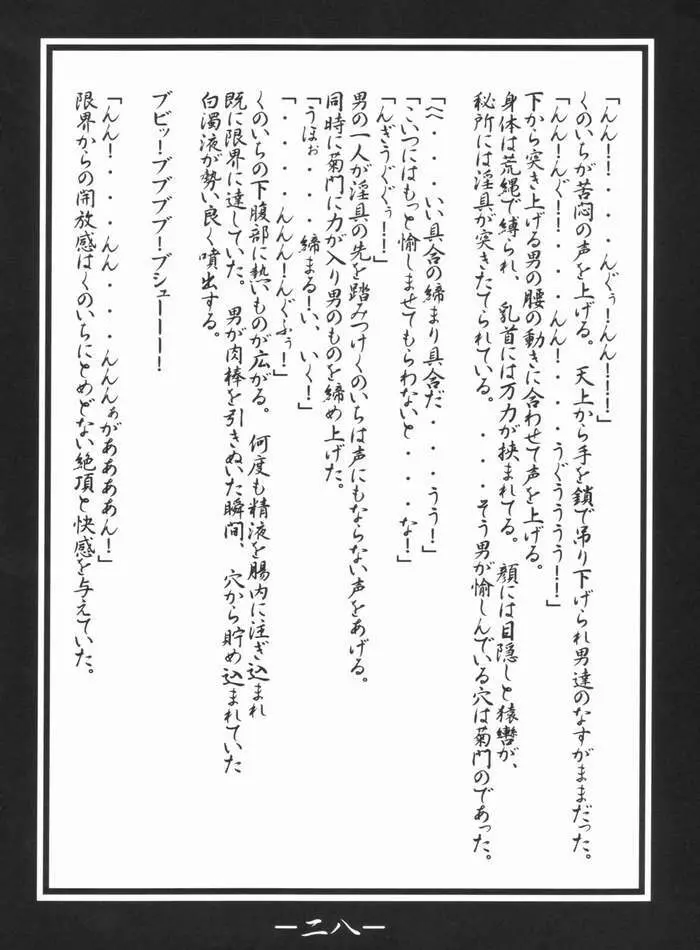 「んん！！・・・んぐぅ！んん！！！」
くのいちが苦悶の声を上げる。　天上から手を鎖で吊り下げられ男達のなすがままだった。
「んん！んぐ！！・・・んん！・・・うぐうううう！！」
下から突き上げる男の腰の動きに合わせて声を上げる。
身体は荒縄で縛られ、　乳首には万力が挟まれてる。　顔には目隠しと猿轡が、
秘所には淫具が突きたてられている。　・・・そう男が愉しんでいる穴は菊門のであった。
「へ・・・いい具合の締まり具合だ・・・うう！」
「こいつにはもっと愉しませてもらわないと・・・な！」
「んぎうぐぐぅ！！」
男の一人が淫具の先を踏みつけくのいちは声にもならない声をあげる。
同時に菊門に力が入り男のものを締め上げた。
「うほぉ・・・締まる！い、いく！」
「・・・・んんん！んぐふぅ！」
くのいちの下腹部に熱いものが広がる。　何度も精液を腸内に注ぎ込まれ
既に限界に達していた。　男が肉棒を引きぬいた瞬間、　穴から貯め込まれていた
白濁液が勢い良く噴出する。
ブビッ！ブブブブ！ブシューーーー！
「んん！・・・んん・・・んんんぁがああああん！」
限界からの開放感はくのいちにとめどない絶頂と快感を与えていた。
－二八－